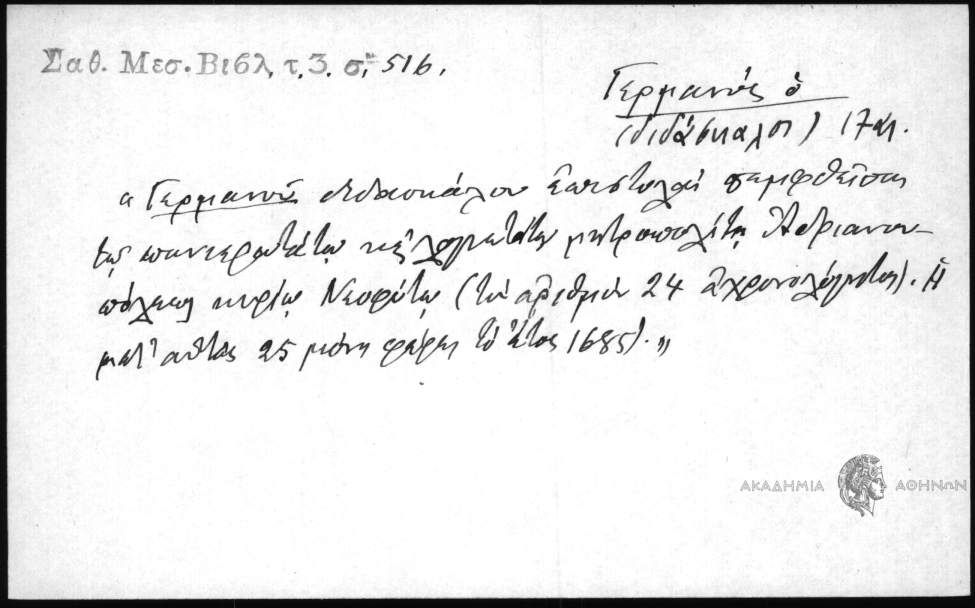 Σαθ. Μεσ. Βιβλ. τ. 3. σ. 516.
Γερμανός ὁ
(διδάσκαλος) 17 αι.
"Γερμανοῦ διδασκάλου ἐπιστολαί πεμφθεῖσαι
τῷ πανιερωτάτῳ καί λογιωτάτῳ μητροπολίτῃ Ἀδριανου-
πόλεως κυρίῳ Νεοφύτῳ (τόν ἀριθμόν 24 ἀχρονολόγητοι). Ἡ
μετ' αὐτάς 25 μόνη φέρει τό ἔτος 1685)."
ΑΚΑΔΗΜΙΑ ΑΘΗΝΩΝ